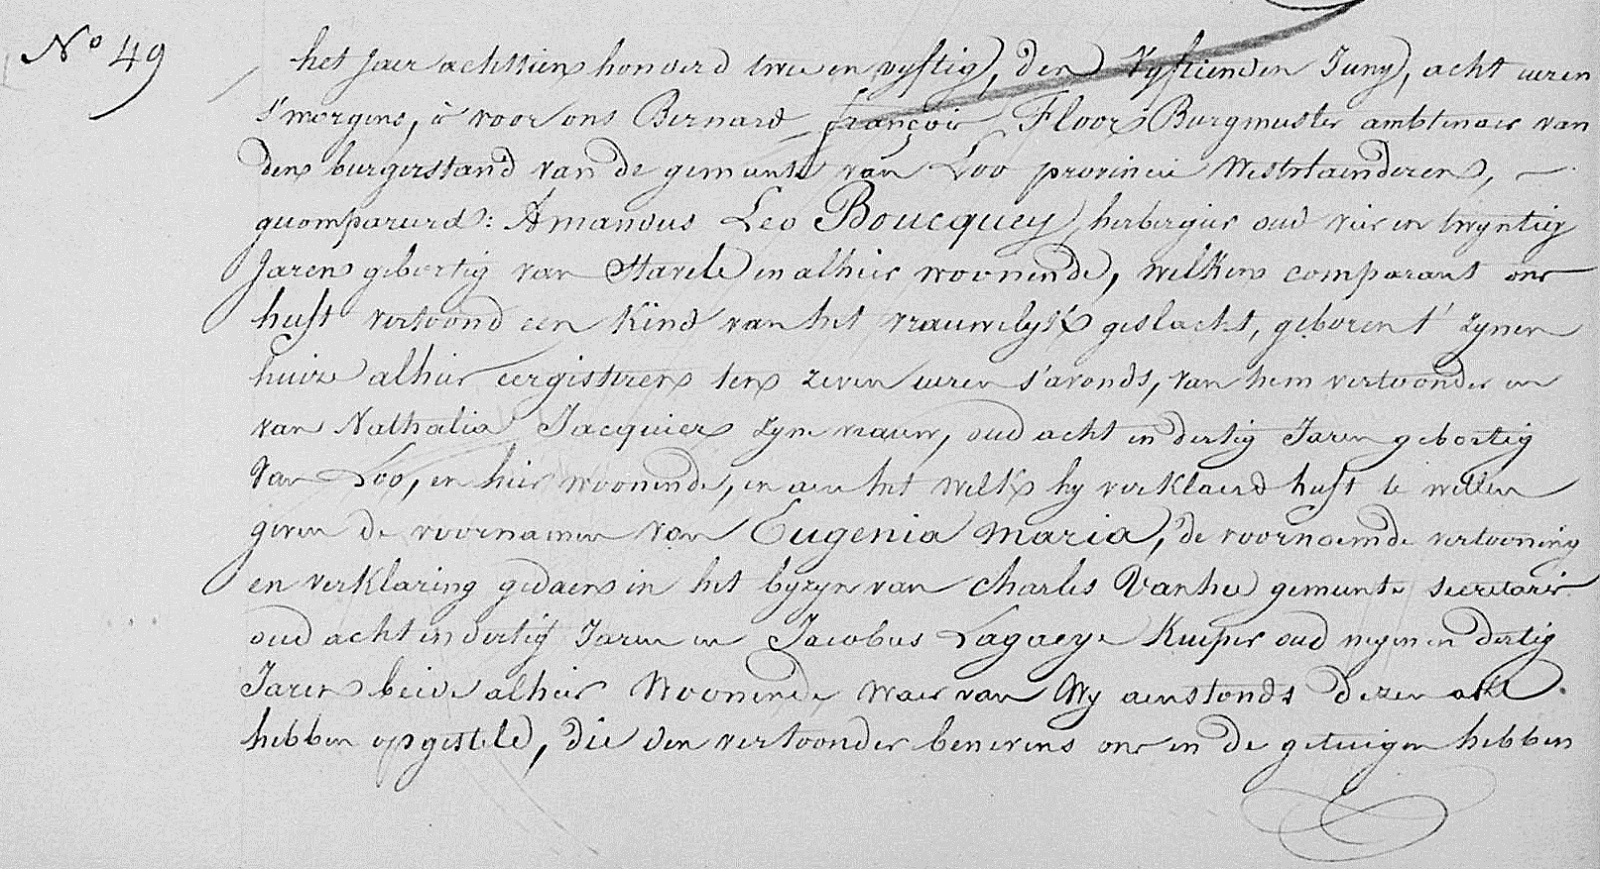 N° 49
het Jaer achttien honderd twee en vyftig, den Vyftienden Juny, acht uren
s'morgens, is voor ons Bernard François Floor Burgmeester ambtenaer van
den burgerstand van de gemeente van Loo provincie Westvlaenderen, –
gecompareerd: Amandus Leo Boucquey, herbergier oud vier en twyntig
Jaren gebortig van Stavele en alhier woonende, welken comparant ons
heeft vertoond een Kind van het vrauwelyk geslacht, geboren t' zynen
huize alhier eergisteren ten zeven uren s'avonds, van hem vertoonder en
van Nathalia Jacquier zyne vrauw, oud acht en dertig Jaren gebortig
Van Loo, en hier woonende, en aen het welk hy verklaerd heeft te willen
geven de voornamen van Eugenia Maria, de voornoemde vertooning
en verklaring gedaen in het byzyn van Charles Vanhee gemeente secretaris
oud acht en dertig Jaren en Jacobus Lagaeye Kuiper oud negen en dertig
Jaren beide alhier Woonende Waer van Wy aenstonds dezen akte
hebben opgesteld, die den vertoonder benevens ons en de getuigen hebben